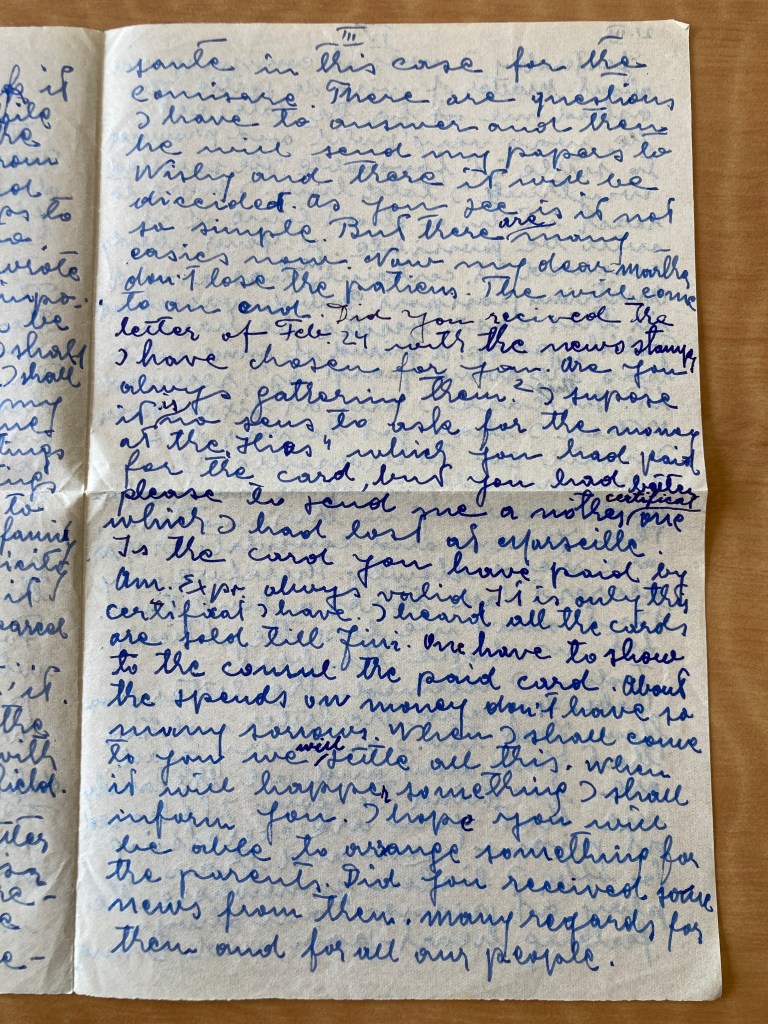 III
sante in this case for the
comisare. There are questions
I have to answer and then
he will send my papers to
Wishy and there it will be
diccided. As you see is it not
so simple. But there are many
easics now. Now my dear Martha
don't lose the patiens. The will come
to an end. Did you recived the
letter of Feb. 24 with the news stamps
I have chosen for you. Are you
always gathering them? I supose
it is no sens to ask for the money
at the "Hias" which you had paid
for the card, but you had better
please to send me a nother certificat one
which I had lost at Marseille.
Is the card you have paid by
Am. Expr. always valid. It is only this
certificat I have. I heard all the cards
are sold till Juni. One have to show
to the consul the paid card. About
the spends on money don't have so
many sorrows. When I shall come
to you we will settle all this. When
it will happen something I shall
inform you. I hope you will
be able to arange something for
the parents. Did you received some
news from them. Many regards for
them and for all our people.
it
the
rom
ps to
wrote
be
I shall
I shall
my
me
tings
ings
to
family
icity
if
pared
it.
the
with
field.